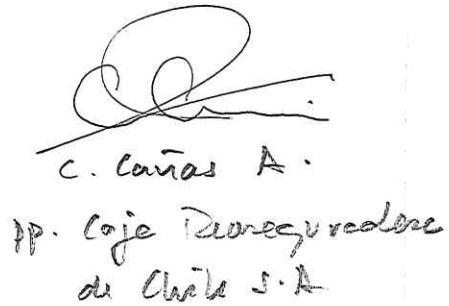 C. Cañas A.
pp. Caja Reaseguradora
de Chile S.A